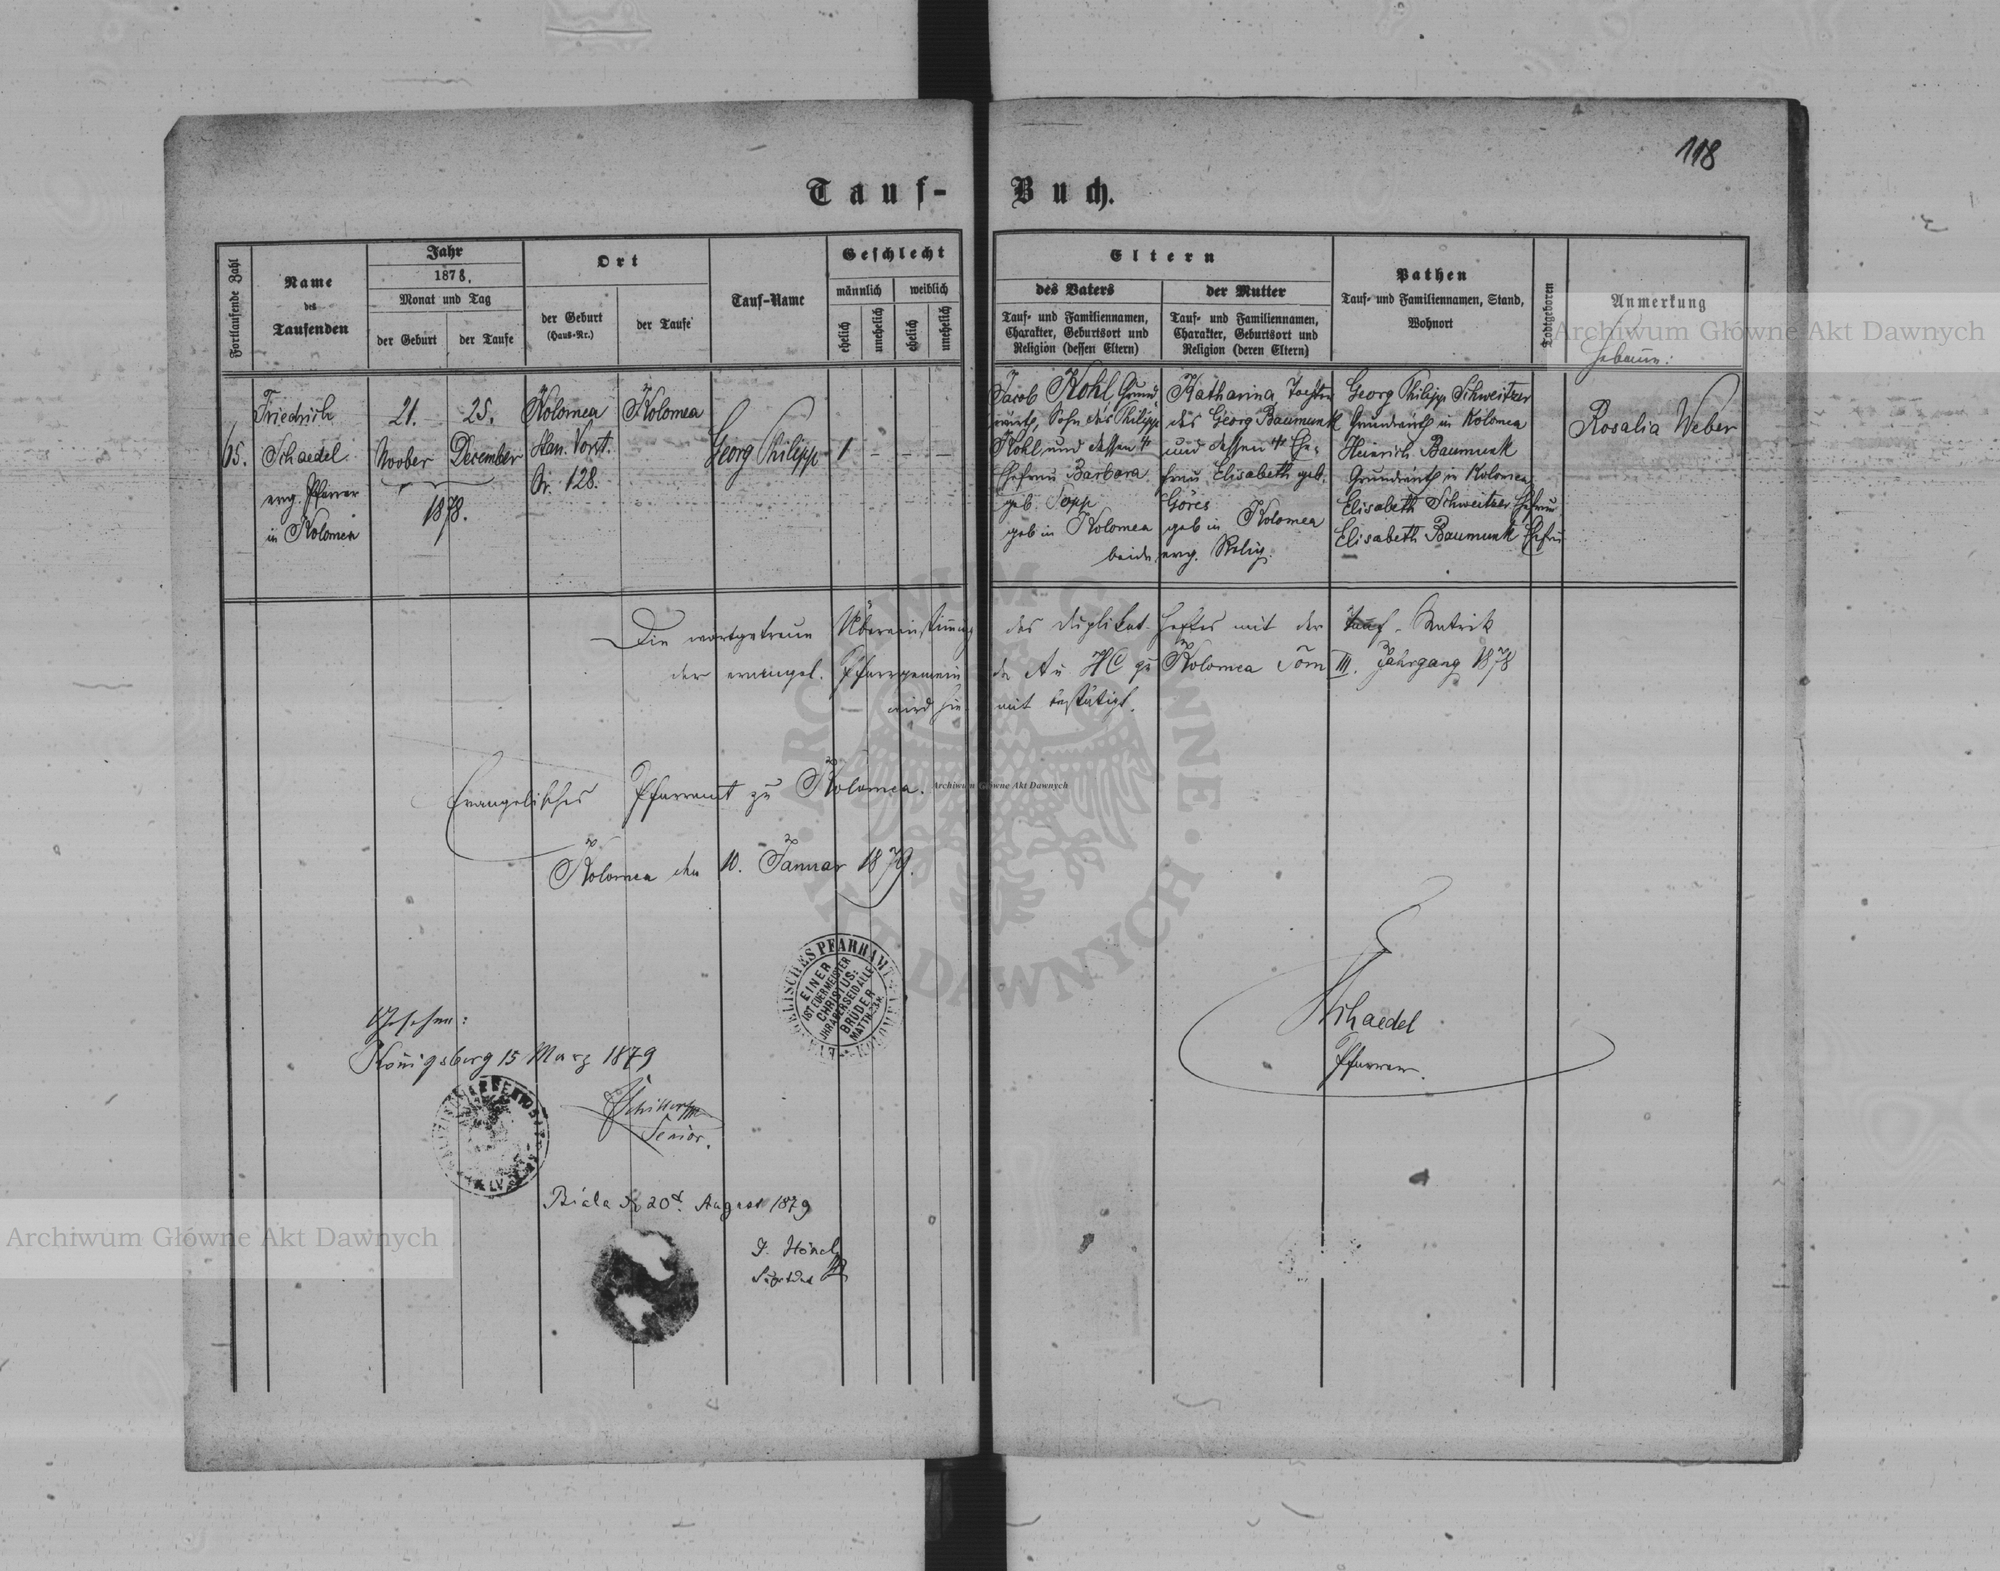 118
Tauf-Buch.
Fortlaufende Zahl
Name
des
Taufenden
Jahr
1878.
Monat und Tag
der Geburt
der Taufe
Ort
der Geburt
(Haus-Nr.)
der Taufe
Tauf-Name
Geschlecht
männlich
weiblich
ehelich
unehelich
ehelich
unehelich
Eltern
des Vaters
Tauf- und Familiennamen,
Charakter, Geburtsort und
Religion (dessen Eltern)
der Mutter
Tauf- und Familiennamen,
Charakter, Geburtsort und
Religion (deren Eltern)
Pathen
Tauf- und Familiennamen, Stand,
Wohnort
Todtgeboren
Anmerkung
65.
Friedrich
Schaedel
evg. Pfarrer
in Kolomea
21.
Novber
25.
December
1878.
Kolomea
Stan. Vorst.
Nr. 128.
Kolomea
Georg Philipp
1 - - -
Jacob Kohl Grund
wirth, Sohn des Philipp
Kohl und dessen
Ehefrau Barbara
geb. Sopp
geb in Kolomea
Katharina Tochter
des Georg Baumunk
und dessen Ehe-
frau Elisabeth geb.
Göres
geb in Kolomea
beide evg. Relig.
Georg Philipp Schweitzer
Grundwirth in Kolomea
Heinrich Baumunk
Grundwirth in Kolomea
Elisabeth Schweitzer Ehefrau
Elisabeth Baumunk Ehefrau
Hebamme:
Rosalia Weber
Die wortgetreue Übereinstimmung des Duplikat-Heftes mit der Tauf-Matrik
der evangel. Pfarrgemeinde AuHC zu Kolomea Tom III. Jahrgang 1878
wird hiemit bestätigt.
Evangelisches Pfarramt zu Kolomea.
Kolomea den 10. Januar 1879.
EVANGELISCHES PFARRAMT KOLOMEA
EINER
IST EUER MEISTER
CHRISTUS:
IHR ABER SEID ALLE
BRÜDER
MATTH. 23.8.
Schaedel
Pfarrer.
Gesehen:
Königsberg 15 Marz 1879
Senior.
Biala den 20t. August 1879
J. Hönel
Archiwum Główne Akt Dawnych
Archiwum Główne Akt Dawnych
Archiwum Główne Akt Dawnych
ARCHIWUM GŁÓWNE AKT DAWNYCH